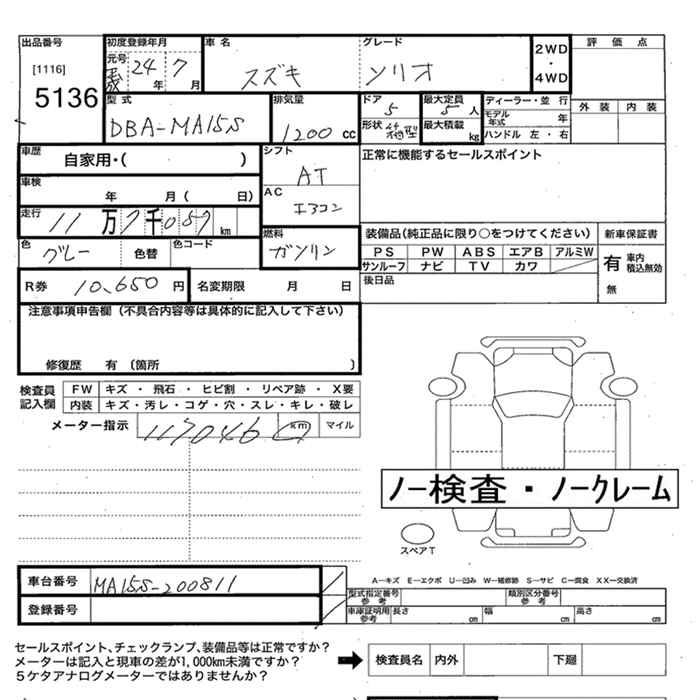 出品番号 初度登録年月 車名 グレード 2WD 評価点
[1116] 元号 24年 7月 スズキ ソリオ ・
5136 4WD
型式 排気量 ドア 最大定員 ディーラー・並行 外装 内装
DBA-MA15S 1200 cc 5 5人 モデル年式 年
形状 最大積載 kg ハンドル 左・右
車歴 自家用・( ) シフト 正常に機能するセールスポイント
AT
車検 年 月( 日) AC
エアコン
走行 11万7千087km 燃料 装備品(純正品に限り○をつけてください) 新車保証書
色 グレー 色替 色コード ガソリン PS PW ABS エアB アルミW 有 車内積込無効
サンルーフ ナビ TV カワ
R券 10,650円 名変期限 月 日 後日品 無
注意事項申告欄(不具合内容等は具体的に記入して下さい)
修復歴 有(箇所 )
検査員記入欄 FW キズ・飛石・ヒビ割・リペア跡・X要
内装 キズ・汚レ・コゲ・穴・スレ・キレ・破レ
メーター指示 117046 km マイル
ノー検査・ノークレーム
スペアT
A―キズ E―エクボ U―凹み W―補修跡 S―サビ C―腐食 XX―交換済
車台番号 MA15S-200811 型式指定番号参考 類別区分番号参考
登録番号 車庫証明用参考 長さ cm 幅 cm 高さ cm
セールスポイント、チェックランプ、装備品等は正常ですか?
メーターは記入と現車の差が1,000km未満ですか? 検査員名 内外 下廻
5ケタアナログメーターではありませんか?